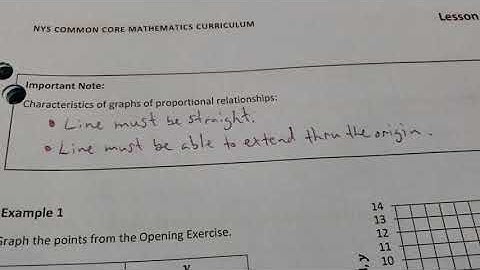 NYS COMMON CORE MATHEMATICS CURRICULUM
Lesson
Important Note:
Characteristics of graphs of proportional relationships:
• Line must be straight.
• Line must be able to extend thru the origin.
Example 1
Graph the points from the Opening Exercise.
14
13
12
11
10
y